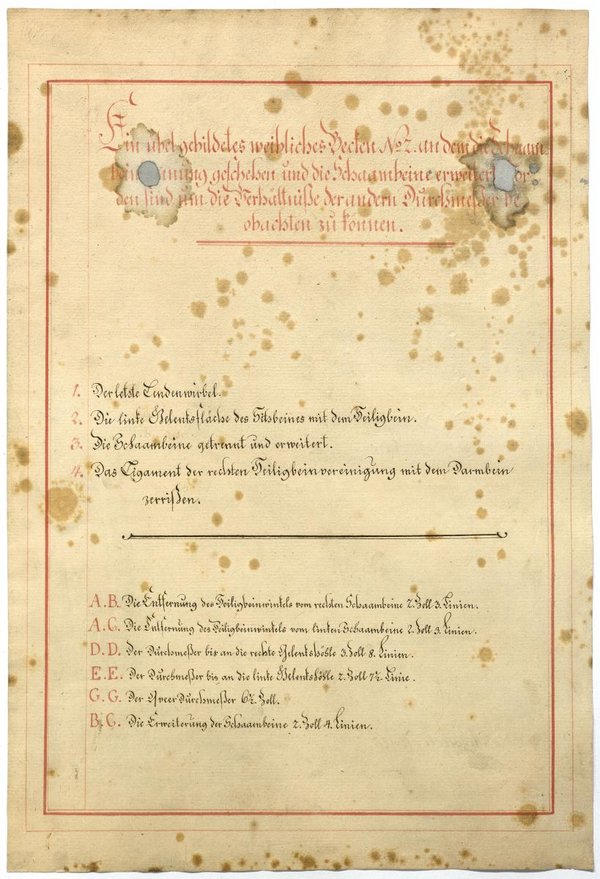 Ein übel gebildetes weibliches Becken No 2. an dem die Schaam
bein nung geschehen und die Schaambeine erweitert or
den sind um die Verhältniße der andern Durchmeßer be
obachten zu können.
1. Der letste Lendenwirbel.
2. Die linke Gelentsfläche des Sitsbeines mit dem Heiligbein.
3. Die Schaambeine getrennt und erweitert.
4. Das Ligament der rechten Heiligbeinvereinigung mit dem Darmbein
zerrißen.
A. B. Die Entfernung des Heiligbeinwinkels vom rechten Schaambeine 2. Zoll 3. Linien.
A. C. Die Entfernung des Heiligbeinwinkels vom linken Schaambeine 2. Zoll 3. Linien.
D. D. Der Durchmeßer bis an die rechte Gelentshöhle 3. Zoll 8. Linien.
E. E. Der Durchmeßer bis an die linke Gelentshöhle 2. Zoll 7½ Linie.
G. G. Der Queer Durchmeßer 6½ Zoll.
B. C. Die Erweiterung der Schaambeine 2. Zoll 4. Linien.